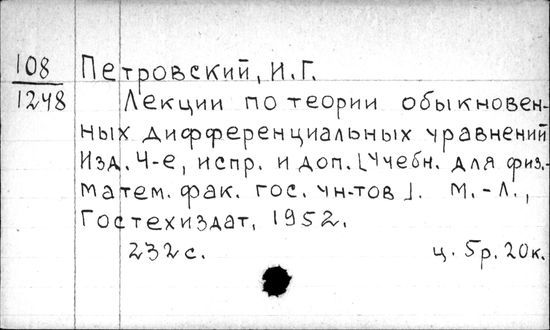 108 Петровский, И.Г.
1248 Лекции по теории обыкновен-
ных дифференциальных уравнений
Изд. 4-е, испр. и доп. [Учебн. для физ.-
матем. фак. гос. ун-тов]. М.-Л.,
Гостехиздат, 1952.
232с. ц. 5р. 20к.